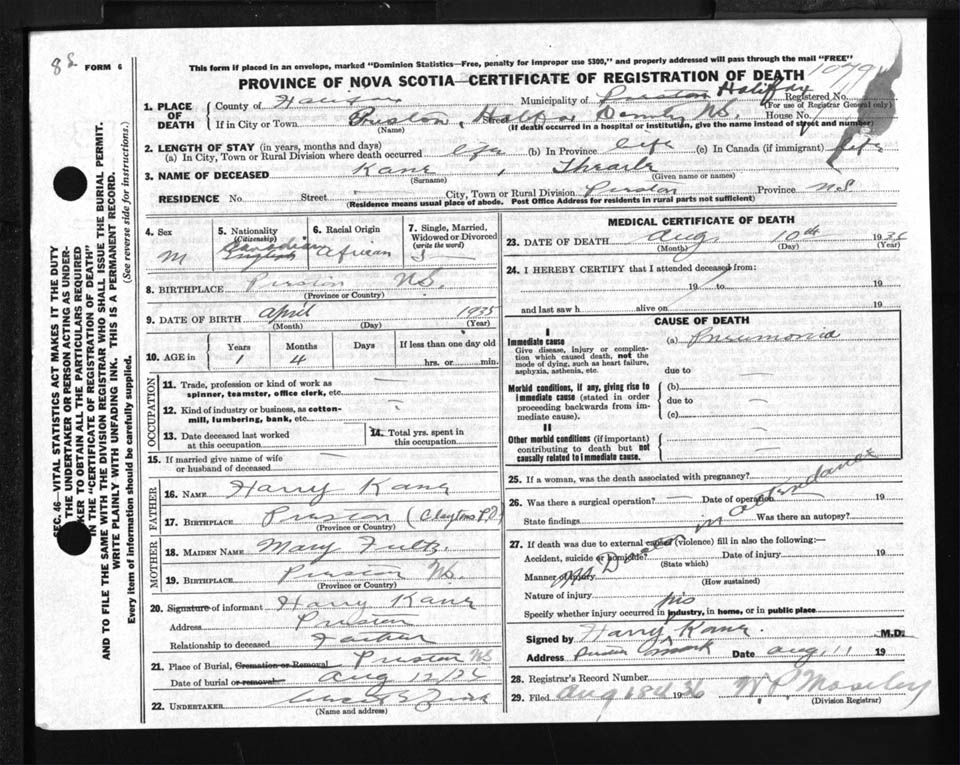 8
FORM 6
This form if placed in an envelope, marked "Dominion Statistics—Free, penalty for improper use $300," and properly addressed will pass through the mail "FREE"
PROVINCE OF NOVA SCOTIA—CERTIFICATE OF REGISTRATION OF DEATH 1079
SEC. 46—VITAL STATISTICS ACT MAKES IT THE DUTY OF THE UNDERTAKER OR PERSON ACTING AS UNDERTAKER TO OBTAIN ALL THE PARTICULARS REQUIRED IN THE "CERTIFICATE OF REGISTRATION OF DEATH" AND TO FILE THE SAME WITH THE DIVISION REGISTRAR WHO SHALL ISSUE THE BURIAL PERMIT.
WRITE PLAINLY WITH UNFADING INK. THIS IS A PERMANENT RECORD.
Every item of information should be carefully supplied. (See reverse side for instructions.)
1. PLACE OF DEATH
County of Municipality of Preston Halifax Registered No.
(For use of Registrar General only)
If in City or Town Preston, Halifax County NS. House No.
(Name) (If death occurred in a hospital or institution, give the name instead of street and number)
2. LENGTH OF STAY (in years, months and days)
(a) In City, Town or Rural Division where death occurred life (b) In Province life (c) In Canada (if immigrant) life
3. NAME OF DECEASED Kane,
(Surname) (Given name or names)
RESIDENCE No. Street City, Town or Rural Division Preston Province NS
(Residence means usual place of abode. Post Office Address for residents in rural parts not sufficient)
4. Sex
M
5. Nationality (Citizenship)
Canadian
English
6. Racial Origin
African
7. Single, Married, Widowed or Divorced (write the word)
S
8. BIRTHPLACE Preston NS.
(Province or Country)
9. DATE OF BIRTH April 1935
(Month) (Day) (Year)
10. AGE in
Years Months Days If less than one day old
1 4 hrs. or min.
OCCUPATION
11. Trade, profession or kind of work as spinner, teamster, office clerk, etc. —
12. Kind of industry or business, as cotton-mill, lumbering, bank, etc.
13. Date deceased last worked at this occupation
14. Total yrs. spent in this occupation
15. If married give name of wife or husband of deceased —
FATHER
16. NAME Harry Kane
17. BIRTHPLACE Preston (Claytons P.O)
(Province or Country)
MOTHER
18. MAIDEN NAME Mary Fultz
19. BIRTHPLACE Preston NS.
(Province or Country)
20. Signature of informant Harry Kane
Address Preston
Relationship to deceased Father
21. Place of Burial, Cremation or Removal Preston NS
Date of burial or removal Aug 12/36
22. UNDERTAKER
(Name and address)
MEDICAL CERTIFICATE OF DEATH
23. DATE OF DEATH Aug. 10th 1936
(Month) (Day) (Year)
24. I HEREBY CERTIFY that I attended deceased from:
19 to 19
and last saw h alive on 19
CAUSE OF DEATH
I
Immediate cause
Give disease, injury or complication which caused death, not the mode of dying, such as heart failure, asphyxia, asthenia, etc.
(a) Pneumonia
due to —
Morbid conditions, if any, giving rise to immediate cause (stated in order proceeding backwards from immediate cause).
(b)
due to —
(c)
II
Other morbid conditions (if important) contributing to death but not causally related to immediate cause.
25. If a woman, was the death associated with pregnancy?
26. Was there a surgical operation? — Date of operation 19
State findings Was there an autopsy?
No Doctor in attendance
27. If death was due to external causes (violence) fill in also the following:—
Accident, suicide or homicide? Date of injury 19
(State which)
Manner of injury
(How sustained)
Nature of injury
Specify whether injury occurred in industry, in home, or in public place
Signed by Harry Kane. M.D.
his mark
Address Preston Date Aug 11 19
28. Registrar's Record Number
29. Filed Aug 18th 1936 W P Moseley
(Division Registrar)